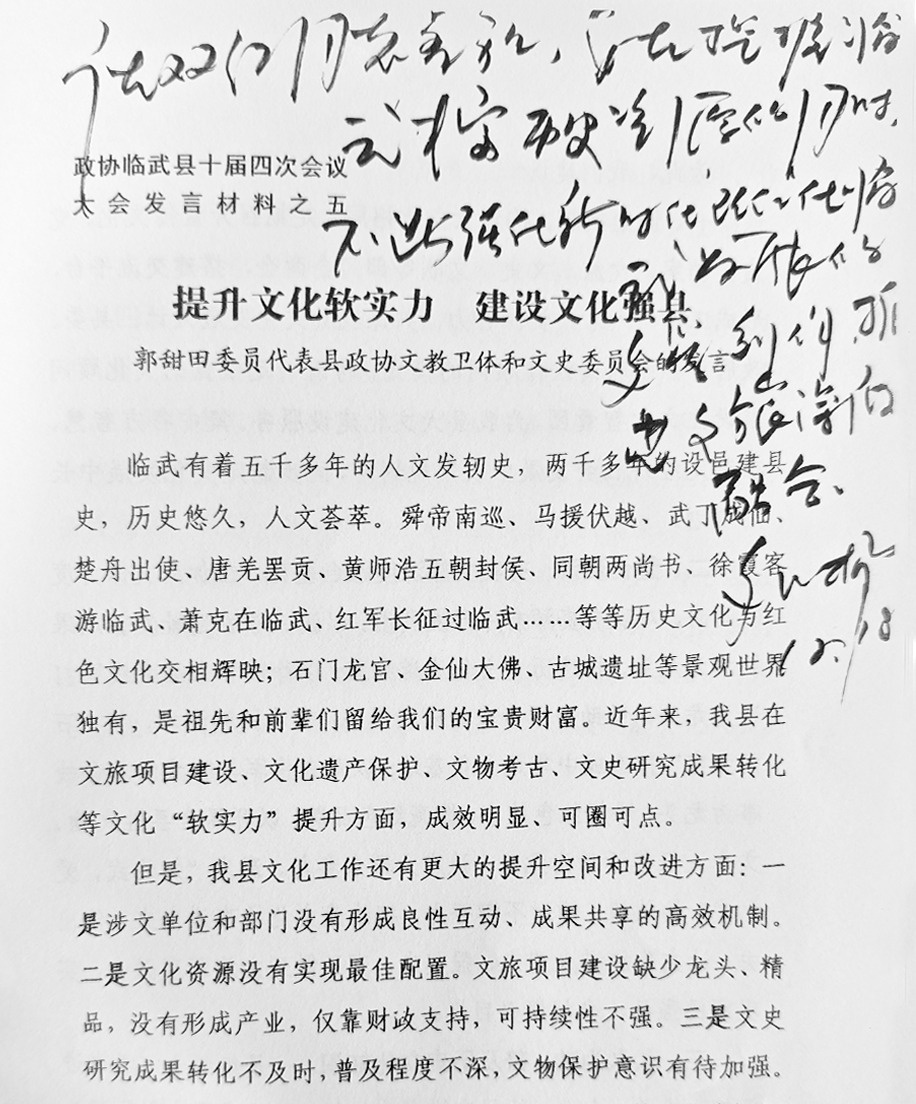 政协临武县十届四次会议
大会发言材料之五
提升文化软实力 建设文化强县
郭甜田委员代表县政协文教卫体和文史委员会的发言
临武有着五千多年的人文发轫史，两千多年的设邑建县
史，历史悠久，人文荟萃。舜帝南巡、马援伏越、武丁成仙、
楚舟出使、唐羌罢贡、黄师浩五朝封侯、同朝两尚书、徐霞客
游临武、萧克在临武、红军长征过临武……等等历史文化与红
色文化交相辉映；石门龙宫、金仙大佛、古城遗址等景观世界
独有，是祖先和前辈们留给我们的宝贵财富。近年来，我县在
文旅项目建设、文化遗产保护、文物考古、文史研究成果转化
等文化“软实力”提升方面，成效明显、可圈可点。
但是，我县文化工作还有更大的提升空间和改进方面：一
是涉文单位和部门没有形成良性互动、成果共享的高效机制。
二是文化资源没有实现最佳配置。文旅项目建设缺少龙头、精
品，没有形成产业，仅靠财政支持，可持续性不强。三是文史
研究成果转化不及时，普及程度不深，文物保护意识有待加强。
历史
的同时，
不断强化新时代
文旅深
融合。
12.18